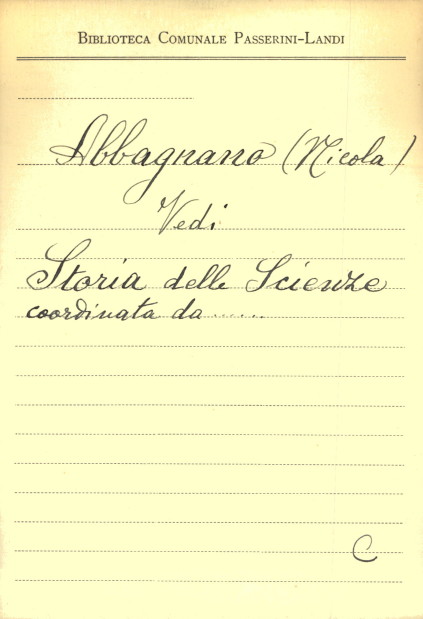 BIBLIOTECA COMUNALE PASSERINI-LANDI
Abbagnano (Nicola)
Vedi
Storia delle Scienze
coordinata da ......
C